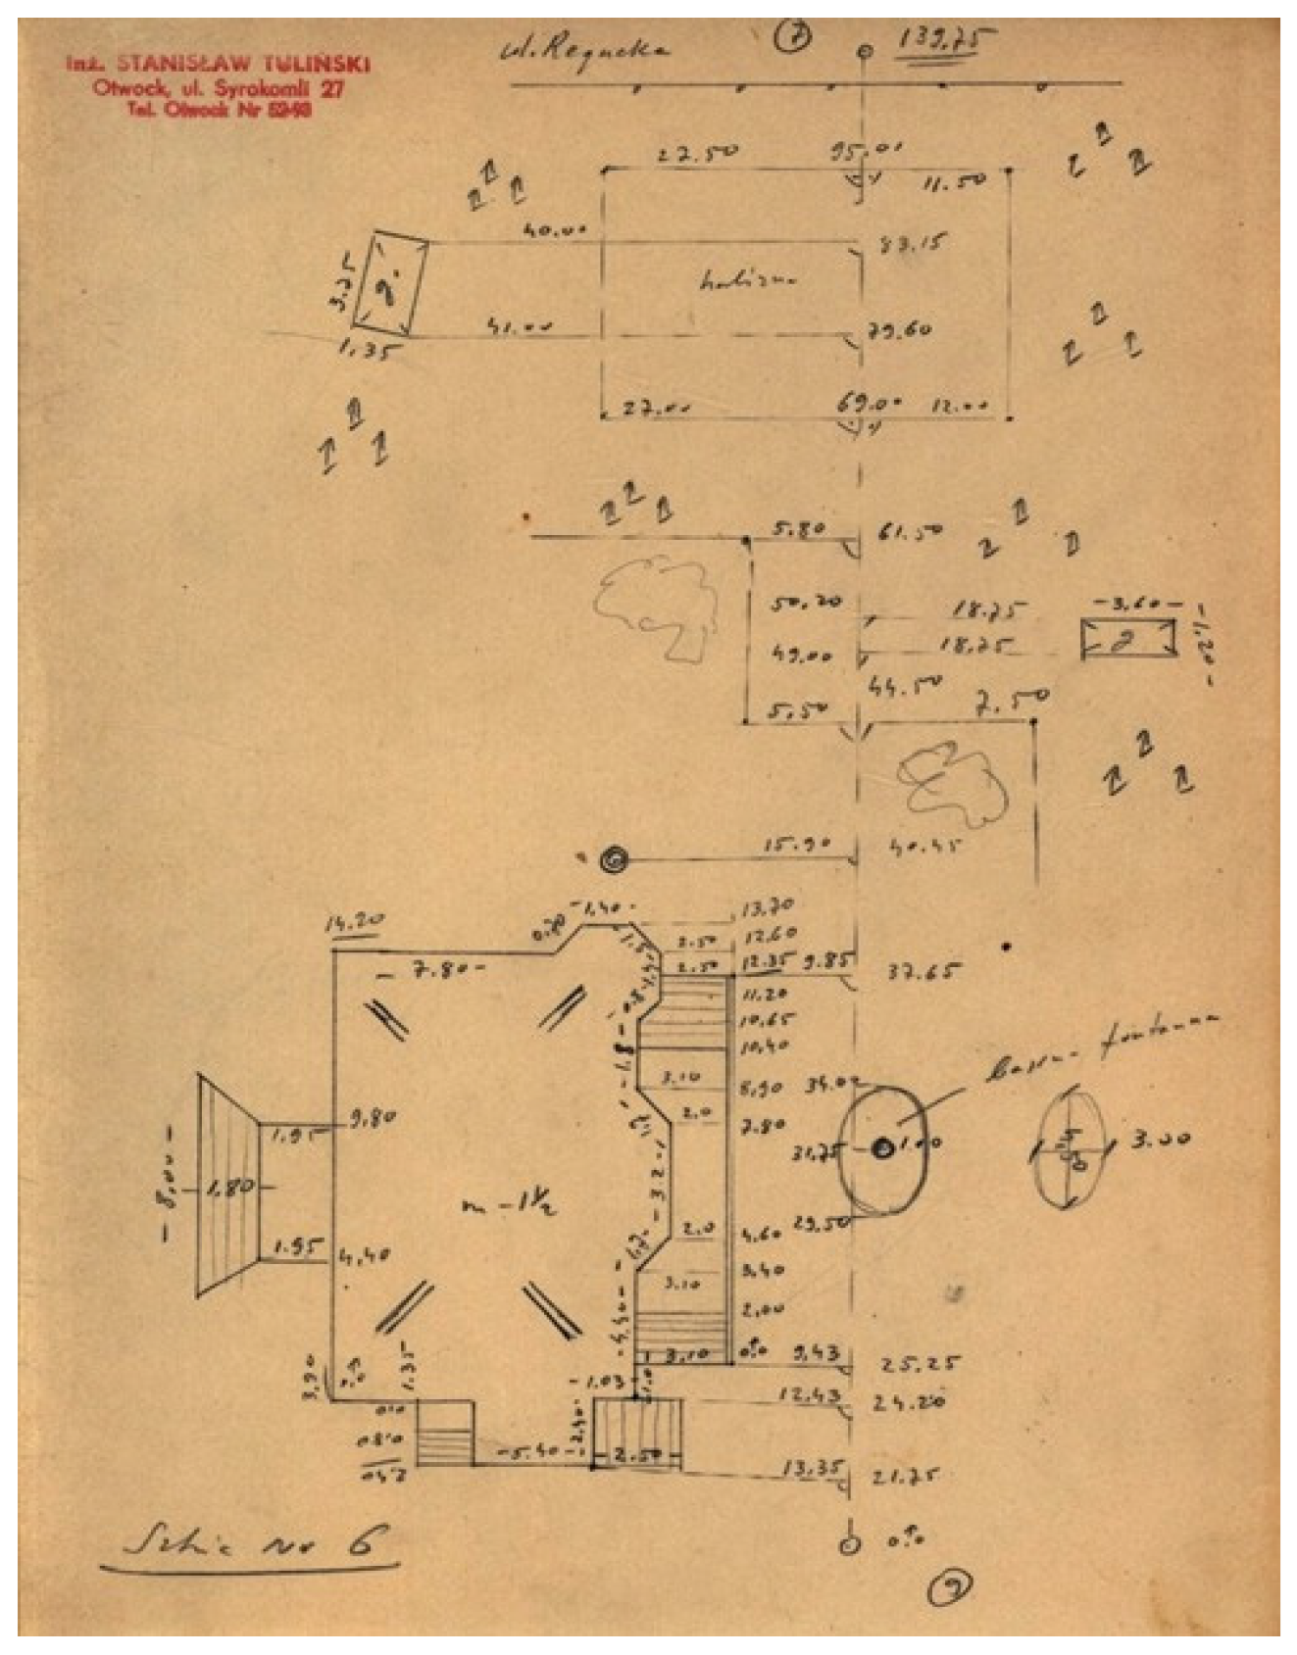 ul. Regucka
7
139,75
Inż. STANISŁAW TULIŃSKI
Otwock, ul. Syrokomli 27
Tel. Otwock Nr 52-93
27.50
95.01
11.50
40.00
83.15
3.25
g.
halizna
41.00
79.60
1,35
27.00
69.00
12.00
5.80
61.50
50,20
18.75
-3,60-
-1,20-
49.00
18,75
g
44.50
5,50
7.50
15.90
40.45
14.20
0.70
-1,40-
13,70
2.50
12.60
-7.80-
2.50
12.35
9.85
37.65
11.20
10,65
10,40
basen fontanna
-1.8-
3.10
8,90
34.00
9,80
2.0
7.80
1.95
31,75
1.00
3.00
-8,00-
1,80
m-1½
-3.2-
2.0
4.60
29.50
1.95
4,40
3,40
3.10
2,00
-4.40-
3.10
0.0
9,43
25.25
3,90
1.35
-1.03-
12,43
24.20
0.0
0.80
2.40
-5.40-
2.50
13,35
21.75
Szkic No 6
0.0
9